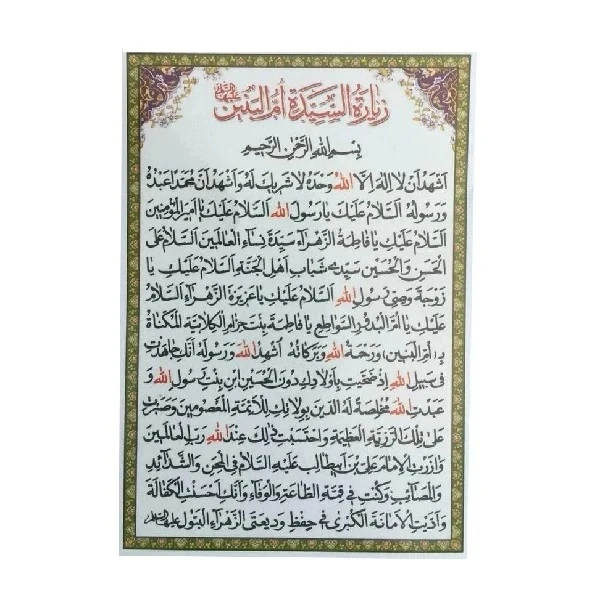 زيارة السيدة أم البنين عليها السلام
بسم الله الرحمن الرحيم
اشهد ان لا اله الا الله وحده لا شريك له واشهد ان محمدا عبده
ورسوله السلام عليك يا رسول الله السلام عليك يا امير المؤمنين
السلام عليك يا فاطمة الزهراء سيدة نساء العالمين السلام على
الحسن والحسين سيدي شباب اهل الجنة السلام عليك يا
زوجة وصي رسول الله السلام عليك يا عزيزة الزهراء السلام
عليك يا ام البدور السواطع يا فاطمة بنت حزام الكلابية المكناة
بام البنين ورحمة الله وبركاته اشهد الله ورسوله انك جاهدت
في سبيل الله إذ ضحيت باولادك دون الحسين ابن بنت رسول الله و
عبدت الله مخلصة له الدين بولائك للأئمة المعصومين وصبرت
على تلك الرزية العظيمة واحتسبت ذلك عند الله رب العالمين
وآزرت الامام علي بن ابي طالب عليه السلام في المحن والشدائد
والمصائب وكنت في قمة الطاعة والوفاء وانك احسنت الكفالة
واديت الامانة الكبرى في حفظ وديعتي الزهراء البتول عليها السلام